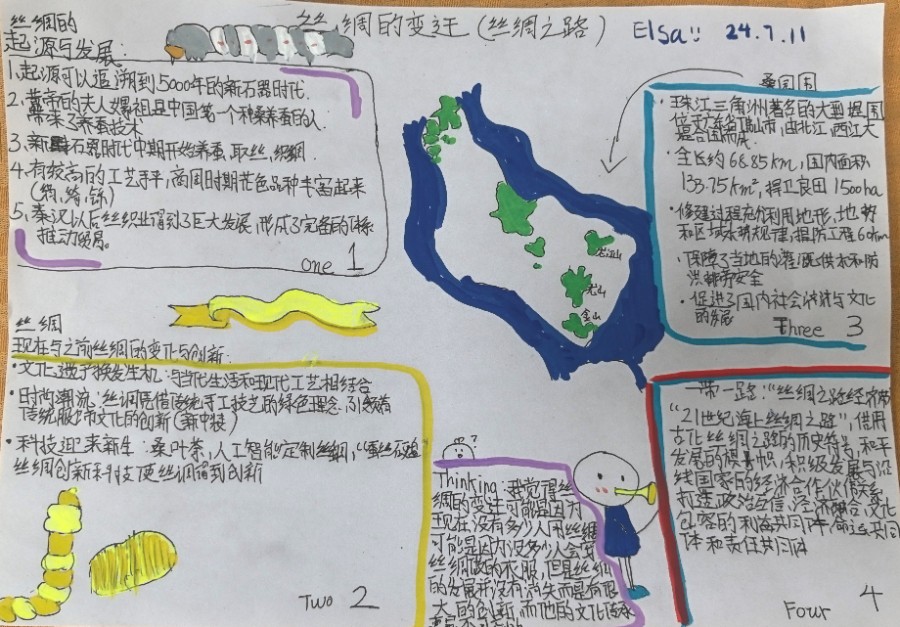 丝绸的变迁(丝绸之路)
Elsa!! 24.7.11
丝绸的
起源与发展:
1.起源可以追溯到5000年的新石器时代.
2.黄帝的夫人嫘祖是中国第一个种桑养蚕的人.
带来了养蚕技术
3.新石器时代中期开始养蚕,取丝,织绸
4.有较高的工艺水平,商周时期花色品种丰富起来
5.秦汉以后丝织业得到了巨大发展,形成了完备的体系
推动贸易.
one 1
丝绸
现在与之前丝绸的变化与创新:
·文化遗产焕发生机:与当代生活和现代工艺相结合
·时尚潮流:丝绸凭借传统手工技艺的绿色理念,引领着
传统服饰文化的创新(新中装)
·科技迎来新生:桑叶茶,人工智能定制丝绸,
丝绸创新科技使丝绸得到创新
Two 2
龙山
金山
桑园围
·珠江三角洲著名的大型堤围
位于广东省佛山市,由北江,西江大
堤合围而成.
·全长约68.85km,围内面积
133.75km²,捍卫良田1500ha
·修建过程充分利用地形,地势
和区域水势规律,堤防工程64km
·保障了当地的灌溉供水和防
洪排涝安全
·促进了围内社会经济与文化
的发展
Three 3
Thinking:我觉得丝
绸的变迁可能是因为
现在没有多少人用丝绸
可能是因为没多少人会做
丝绸做的衣服,但是丝绸
的发展并没有消失而是有很
大的创新,而他的文化传承
一带一路:"丝绸之路经济带"
"21世纪海上丝绸之路",借用
古代丝绸之路的历史符号,和平
发展的旗帜,积极发展与沿
线国家的经济合作伙伴关系
打造政治互信,经济融合,文化
包容的利益共同体,命运共同
体和责任共同体
Four 4